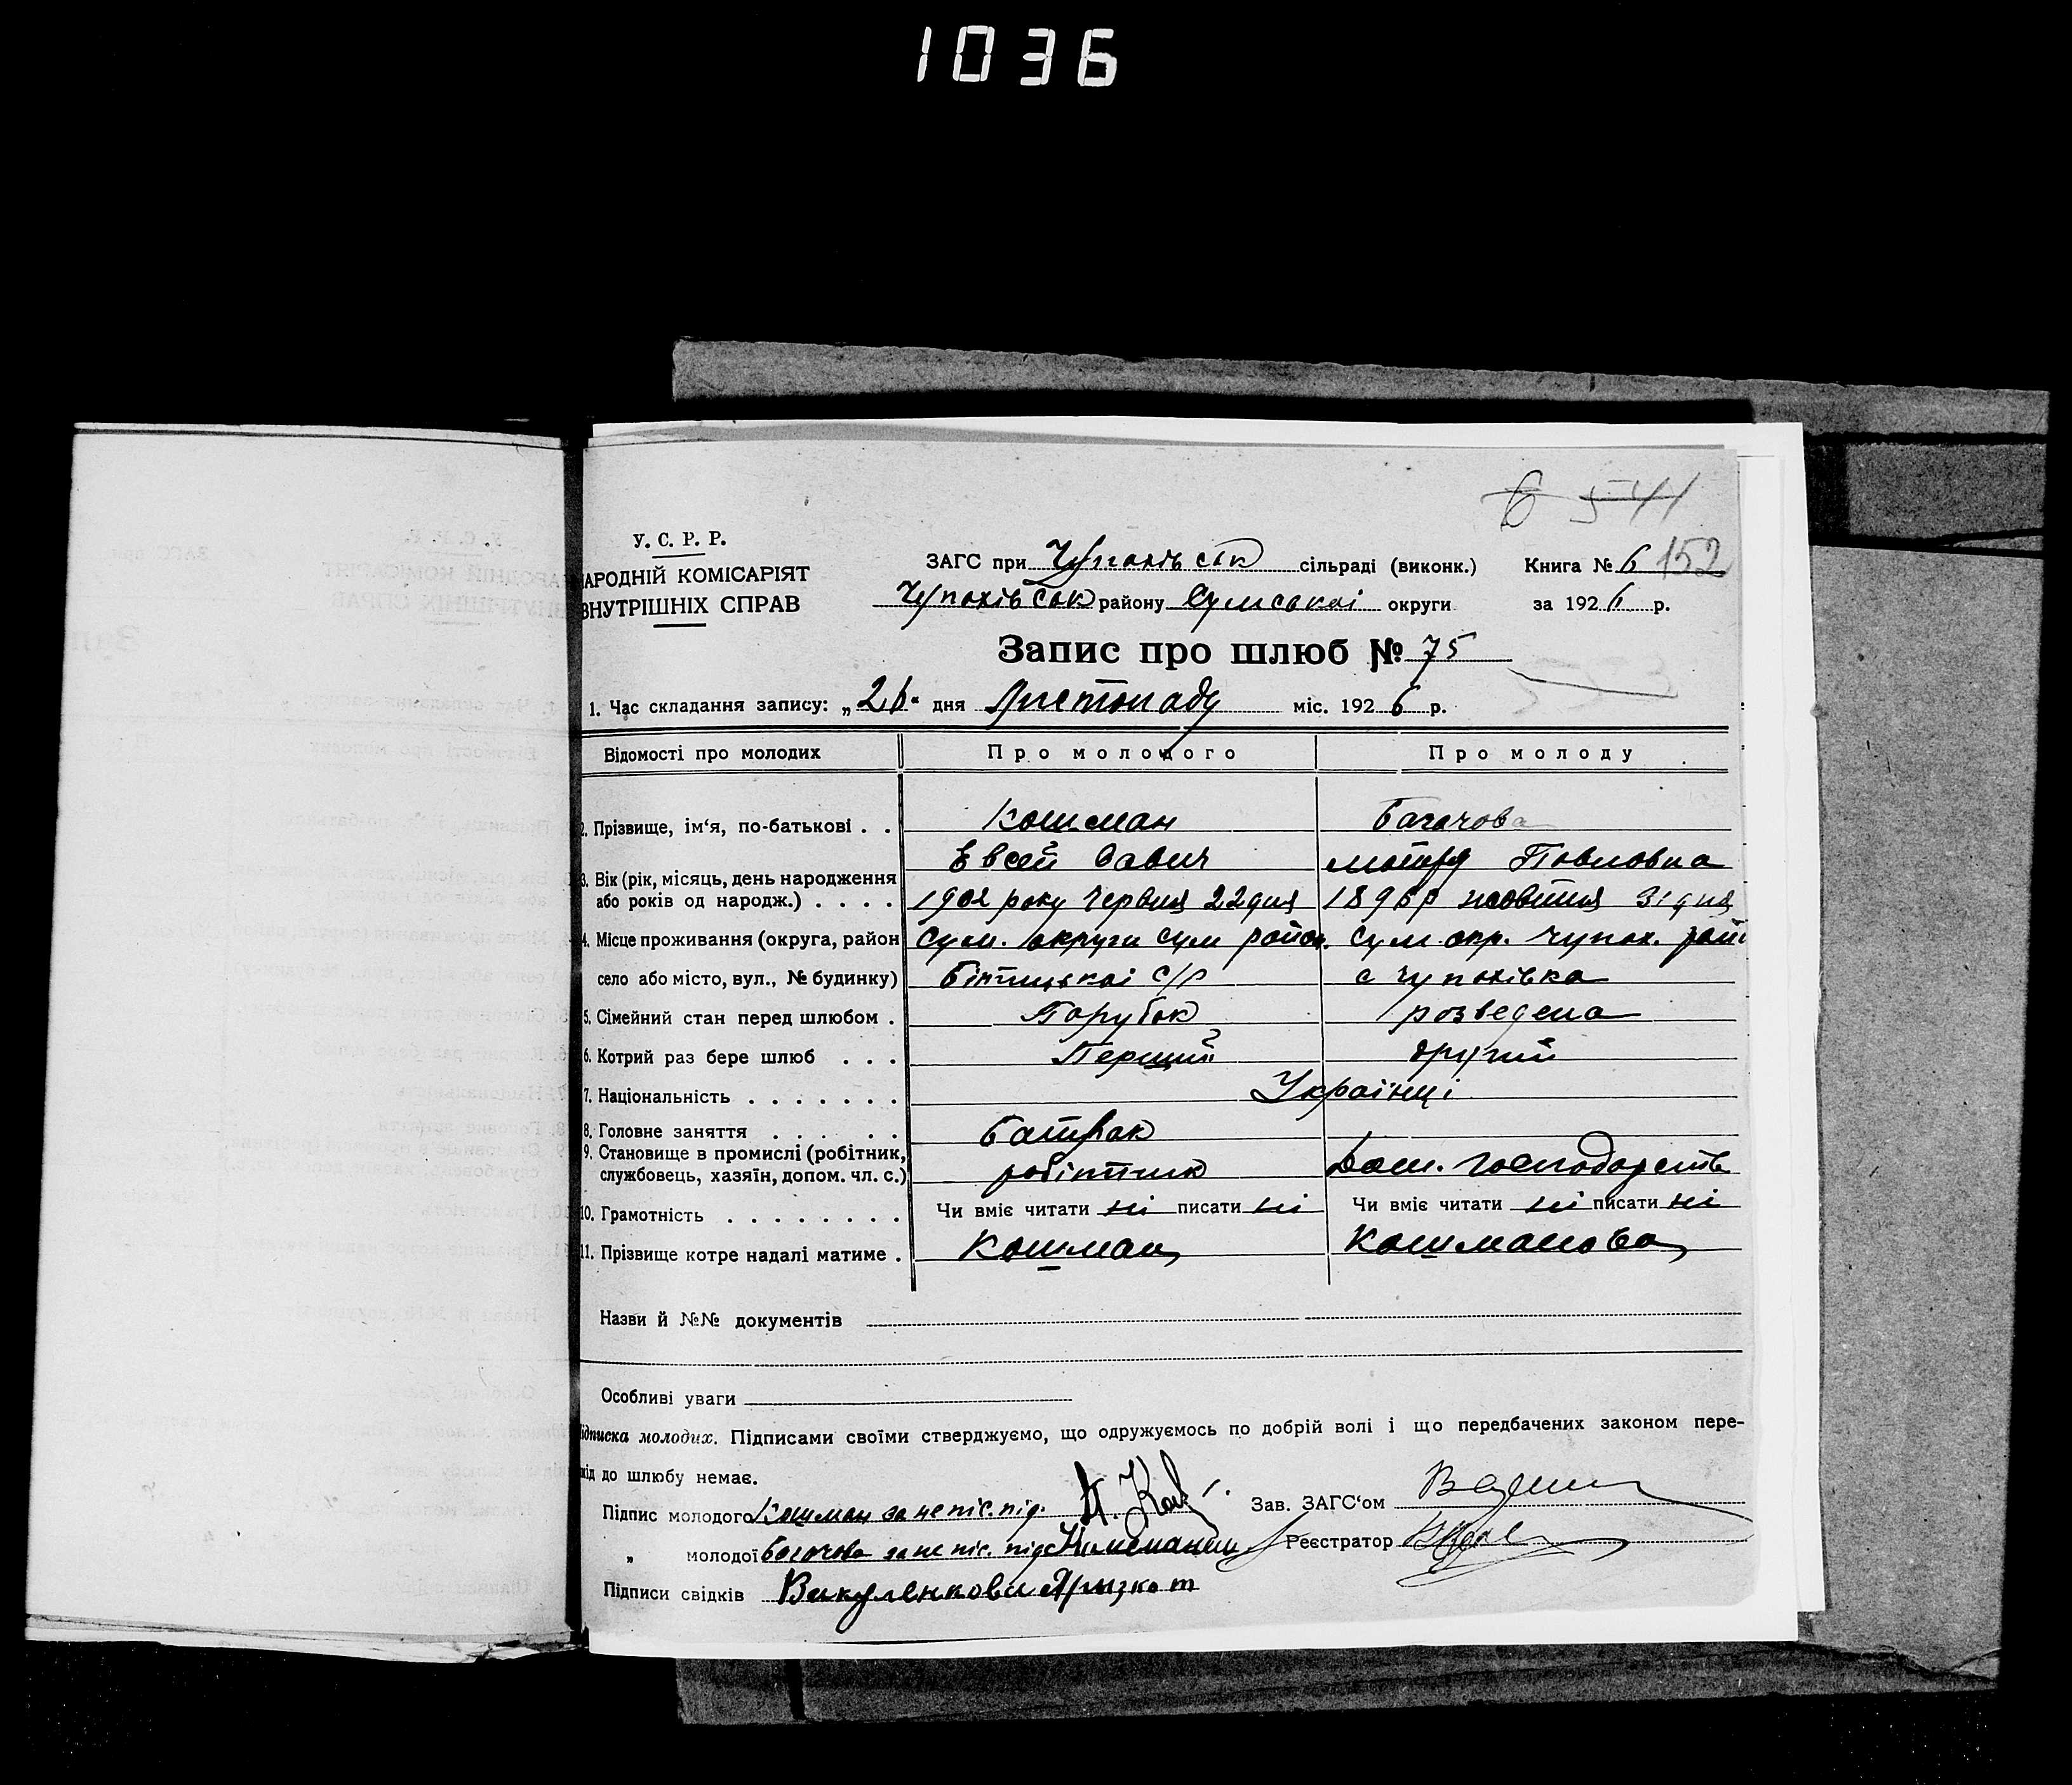 1036
6 541
У. С. Р. Р.
АРОДНІЙ КОМІСАРІЯТ
ВНУТРІШНІХ СПРАВ
ЗАГС при Чупахівськ сільраді (виконк.) Книга № 6 152
Чупахівськ району Сумської округи за 1926 р.
Запис про шлюб № 75
1. Час складання запису: „26“ дня Листопаду міс. 1926 р.
Відомості про молодих Про молодого Про молоду
2. Прізвище, ім‘я, по-батькові . . Кошман Багачова
Евсей Савич Мотря Павловна
3. Вік (рік, місяць, день народження
або років од народж.) . . . . 1902 року Червня 22 дня 1896 р жовтня 31 дня
4. Місце проживання (округа, район Сум. округи Сум район. Сум окр. Чупах. рай
село або місто, вул., № будинку) Бітицькоі с/р с Чупахівка
5. Сімейний стан перед шлюбом . Парубок розведена
6. Котрий раз бере шлюб . . . Перший другий
7. Національність . . . . . . . Українці
8. Головне заняття . . . . . . Батрак
9. Становище в промислі (робітник,
службовець, хазяїн, допом. чл. с.) робітник Дом. господарств
10. Грамотність . . . . . . . . Чи вміє читати ні писати ні Чи вміє читати ні писати ні
11. Прізвище котре надалі матиме . Кошман Кошманова
Назви й №№ документів
Особливі уваги
ідписка молодих. Підписами своїми стверджуємо, що одружуємось по добрій волі і що передбачених законом пере-
кід до шлюбу немає.
Підпис молодого Кошман за непис. під. Зав. ЗАГС‘ом
„ молодої Багачова за не пис. під Реєстратор
Підписи свідків Викуленкова